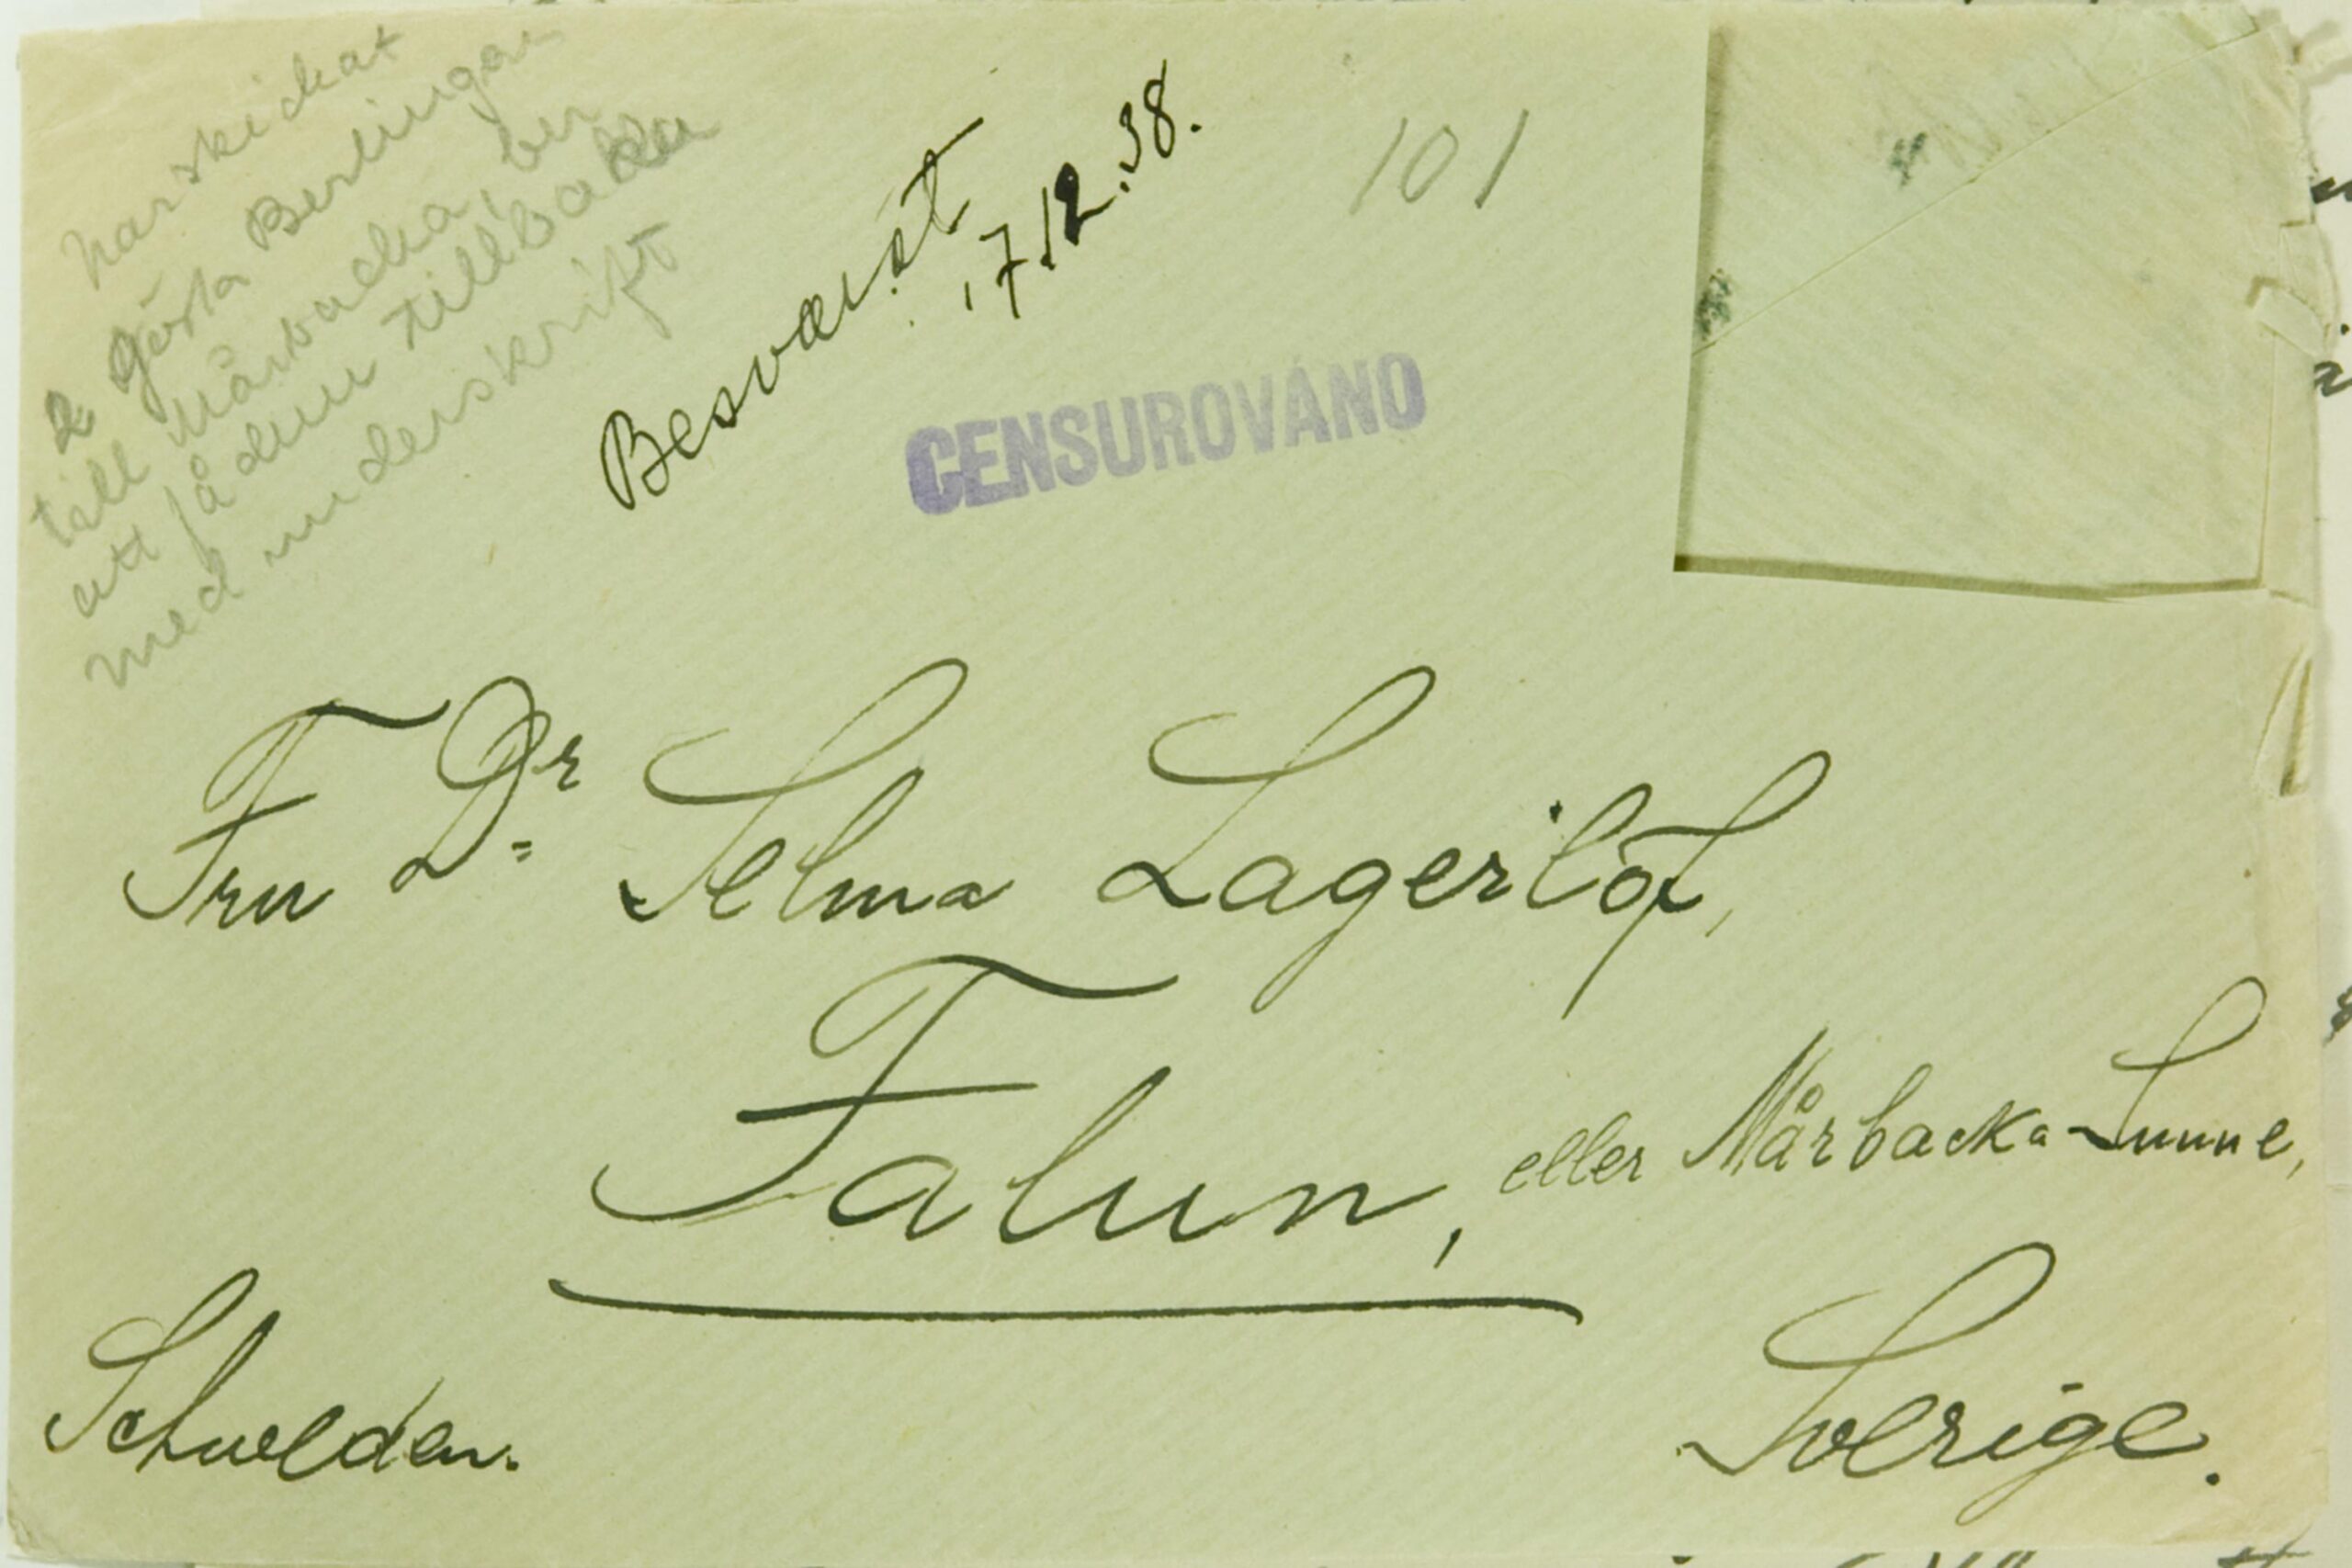 har skickat
2 Gösta Berlingar
till Mårbacka, ber
att få dem tillbaka
med underskrift
Besvarat
17.12.38.
101
CENSUROVÁNO
Fru Dr Selma Lagerlöf,
Falun, eller Mårbacka-Sunne,
Schweden.
Sverige.